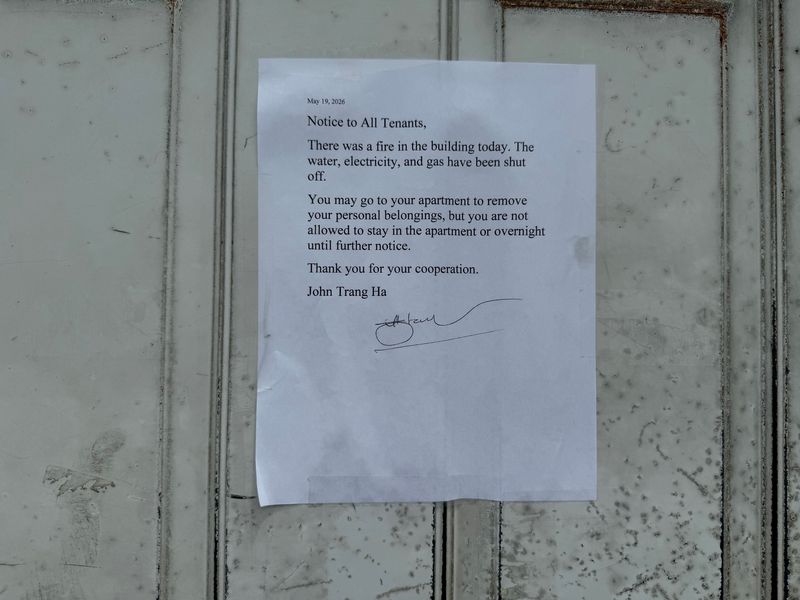 May 19, 2026
Notice to All Tenants,
There was a fire in the building today. The
water, electricity, and gas have been shut
off.
You may go to your apartment to remove
your personal belongings, but you are not
allowed to stay in the apartment or overnight
until further notice.
Thank you for your cooperation.
John Trang Ha